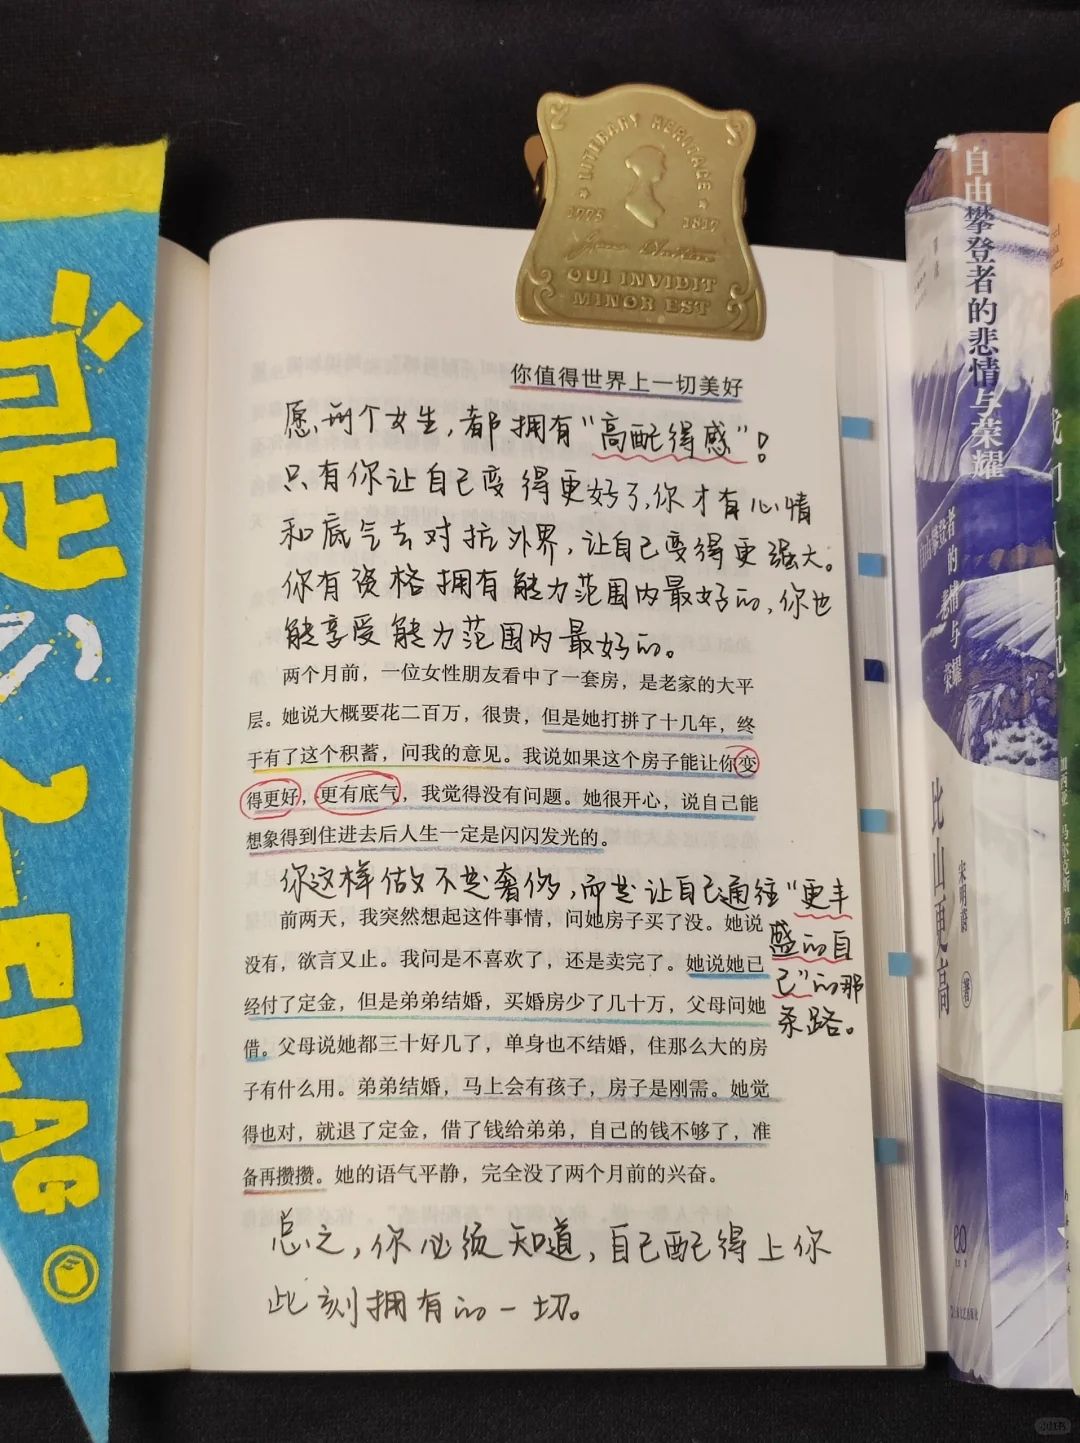 LITERARY HERITAGE
1775 1817
Jane Austen
QUI INVIDIT
MINOR EST
你值得世界上一切美好
愿每个女生，都拥有“高配得感”！
只有你让自己变得更好了，你才有心情
和底气去对抗外界，让自己变得更强大。
你有资格拥有能力范围内最好的，你也
能享受能力范围内最好的。
两个月前，一位女性朋友看中了一套房，是老家的大平
层。她说大概要花二百万，很贵，但是她打拼了十几年，终
于有了这个积蓄，问我的意见。我说如果这个房子能让你变
得更好，更有底气，我觉得没有问题。她很开心，说自己能
想象得到住进去后人生一定是闪闪发光的。
你这样做不是奢侈，而是让自己通往“更丰
盛的自
己”的那
条路。
前两天，我突然想起这件事情，问她房子买了没。她说
没有，欲言又止。我问是不喜欢了，还是卖完了。她说她已
经付了定金，但是弟弟结婚，买婚房少了几十万，父母问她
借。父母说她都三十好几了，单身也不结婚，住那么大的房
子有什么用。弟弟结婚，马上会有孩子，房子是刚需。她觉
得也对，就退了定金，借了钱给弟弟，自己的钱不够了，准
备再攒攒。她的语气平静，完全没了两个月前的兴奋。
总之，你必须知道，自己配得上你
此刻拥有的一切。
自由攀登者的悲情与荣耀
自由攀登者的悲情与荣耀
比山更高
宋明蔚 著
加西亚·马尔克斯 著
小红书